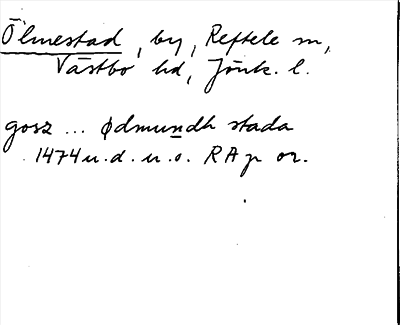 Ölmestad, by, Reftele sn,
Västbo hd, Jönk. l.
gosz ... ødmundh stada
1474 u. d. u. o. RA p or.